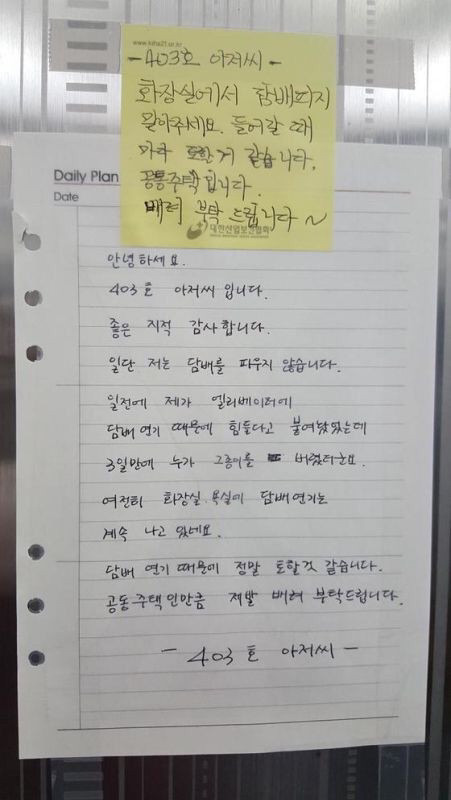 www.kiha21.or.kr
-403호 아저씨-
화장실에서 담배피지
말아주세요. 들어갈 때
마다 토할거 같습니다.
공통주택입니다.
배려 부탁드립니다~
대한산업보건협회
Daily Plan
Date
안녕하세요.
403호 아저씨입니다.
좋은 지적 감사합니다.
일단 저는 담배를 피우지 않습니다.
일전에 제가 엘리베이터에
담배연기 때문에 힘들다고 붙여놨었는데
3일만에 누가 그종이를 버렸더군요.
여전히 화장실.욕실에 담배연기는
계속 나고 있네요.
담배 연기때문에 정말 토할것 같습니다.
공동주택인만큼 제발 배려 부탁드립니다.
- 403호 아저씨 -